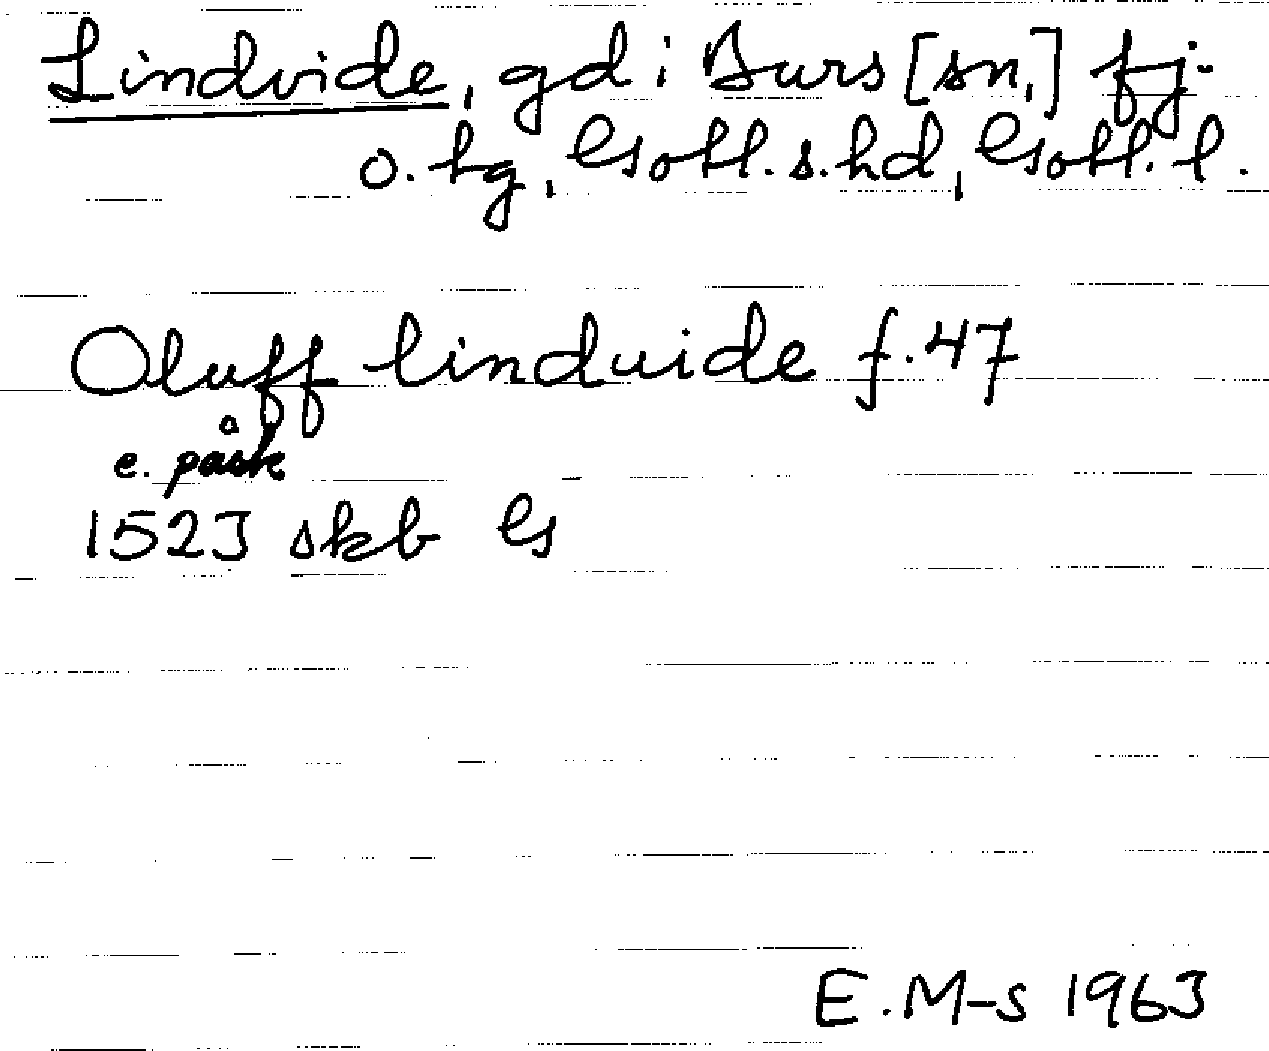 Lindvide, gd i Burs [sn,] fj.
o. tg, Gotl. s. hd, Gotl. l.
Oluff linduide f. 47
e. påsk
1523 skb G
E. M-s 1963